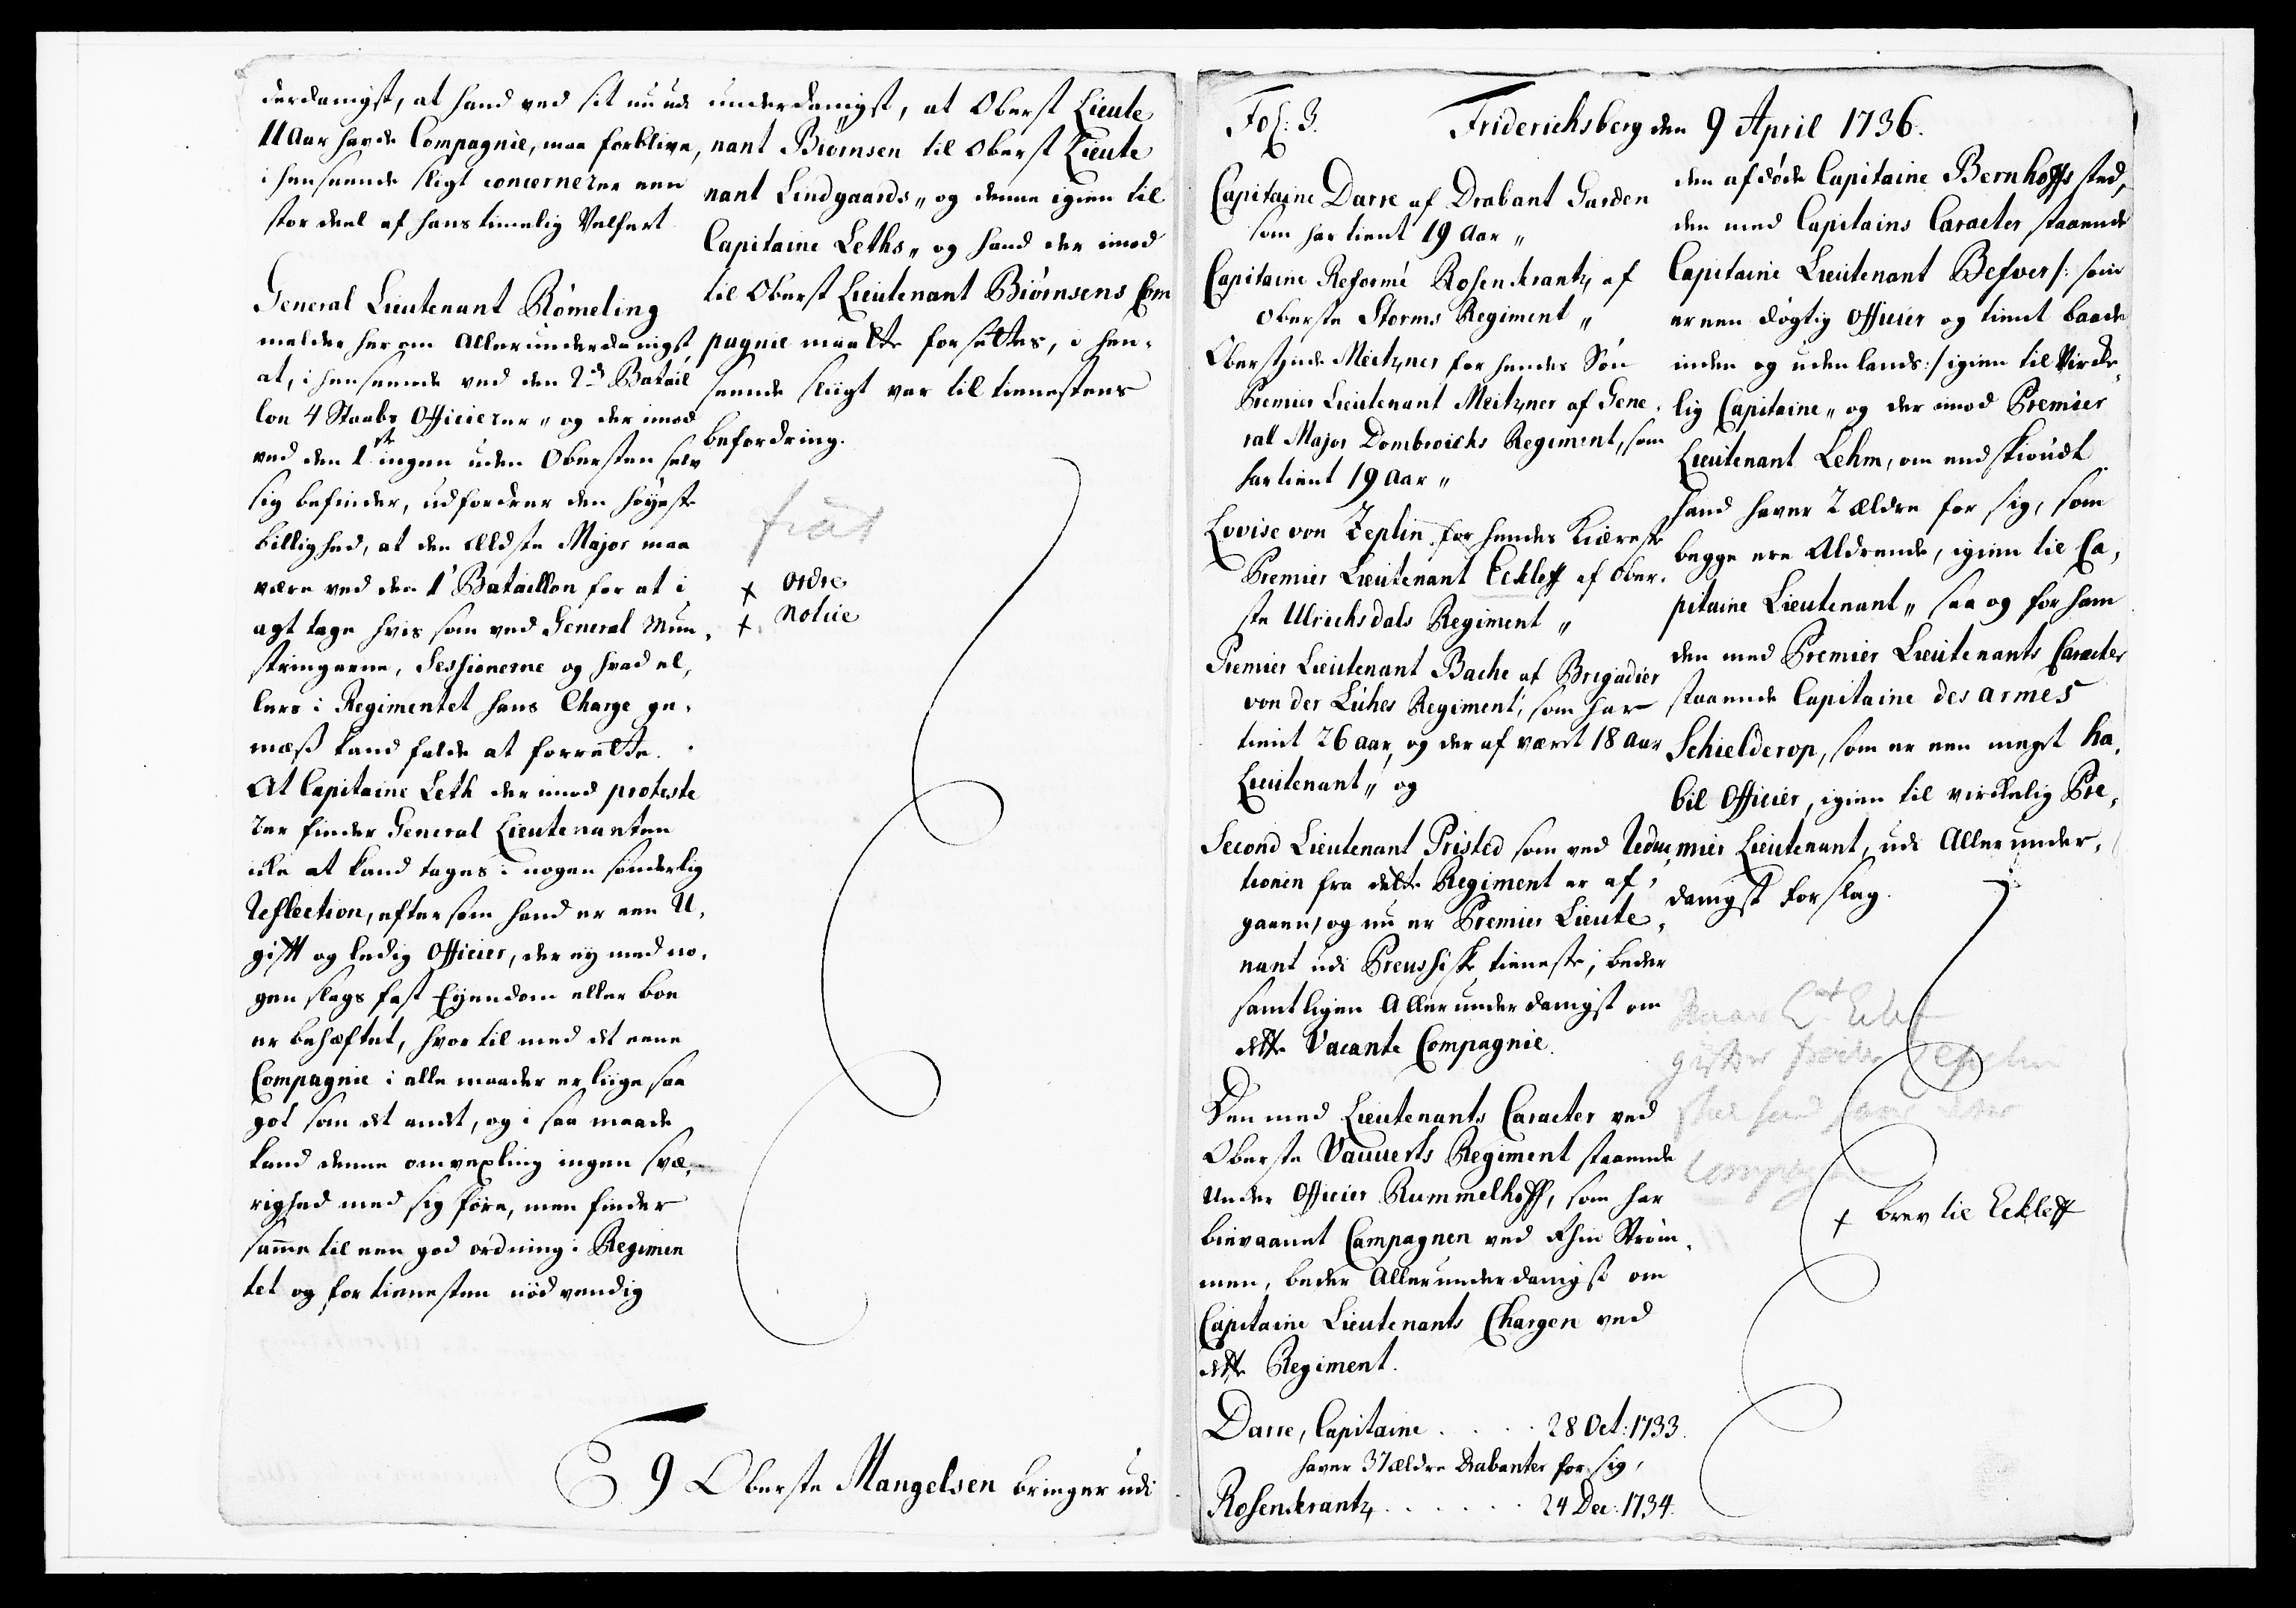 derdanigst, at hand ved sit nu udi
11 Aar havde Compagnie, maa forblive,
i henseende sligt concernerer een
stor deel af hans timelig Velfert
General Lieutenant Römeling
melder her om Allerunderdanigst,
at, i henseende ved den 2den Batail
lon 4 Staabs Officierer, og der imod
ved den 1ste ingen uden Obersten selv
sig befinder, udfordrer den höyeste
billighed, at den Eldste Major maa
være ved den 1ste Bataillon for at i
agt tage hvis som ved General Mun,
stringerne, Sessionerne og hvad el,
lers i Regimentet hans Charge ge,
mæss kand falde at forrette.
At Capitaine Leth der imod proteste
rer finder General Lieutenanten
icke at kand tages i nogen sönderlig
Reflection, eftersom hand er een U,
gift og ledig Officier, der ey med no,
gen slags fast Eyendom eller boe
er behæftet, hvor til med det eene
Compagnie i alle maader er liige saa
got som det andet, og i saa maade
kand denne omvexling ingen svæ,
righed med sig före, men finder
samme til een god ordning i Regimen
tet og for tienesten nödvendig
underdanigst, at Oberst Lieute
nant Biörnsen til Oberst Lieute
nant Lindgaards, og denne igien til
Capitaine Leths, og hand der imod
til Oberst Lieutenant Biörnsens Com
pagnie maatte forsættes, i hen,
seende sliigt var til tienestens
befordring.
fiat
+ ordre
+ Notice
9 Oberste Mangelsen bringer udi
Fol: 3.
Friderichsberg den 9 April 1736.
Capitaine Darre af Drabant Garden
som har tient 19 Aar,,
Capitaine Reformé Rosenkrantz af
Oberste Storms Regiment,,
Oberstinde Meitzner for hendes Sön
Premier Lieutenant Meitzner af Gene,
ral Major Dombroichs Regiment, som
har tient 19 Aar,,
Lovise von Zeplin for hendes Kiæreste
Premier Lieutenant Eckleff af Ober,
ste Ulrichsdals Regiment,,
Premier Lieutenant Bache af Brigadier
von der Lühes Regiment, som har
tient 26 aar, og der af været 18 Aar
Lieutenant,, og
Second Lieutenant Pristed som ved Reduc,
tionen fra dette Regiment er af,
gaaen, og nu er Premier Lieute,
nant udi Preussiske tieneste, beder
samtligen Allerunderdanigst om
dette Vacante Compagnie.
Den med Lieutenants Caracter ved
Oberste Vauverts Regiment staaende
Under Officier Rummelhoff, som har
bievaanet Campagnen ved Rhin Ström,
men, beder Allerunderdanigst om
Capitaine Lieutenants Chargen ved
dette Regiment.
Darre, Capitaine . . . . 28 Oct: 1733.
haver 37 ældre Drabanter for sig,
Rosenkrantz . . . . . . 24 Dec: 1734.
den afdöde Capitaine Bernhoffs sted,
den med Capitains Caracter staaende
Capitaine Lieutenant Besver /: som
er een dögtig Officier og tient baade
inden og uden lands :/ igien til Virke,
lig Capitaine,, og der imod Premier
Lieutenant Lehm, om endskiöndt
hand haver 2 ældre for sig, som
begge ere Aldrende, igien til Ca,
pitaine Lieutenant,, saa og for ham
den med Premier Lieutenants Caracter
staaende Capitaine des armes
Schielderop, som er een meget ha,
bil Officier, igien til virkelig Pre,
mier Lieutenant, udi Allerunder,
danigst forslag.
gifter
skal hand have dette
Compagnie
+ brev til Eckleff